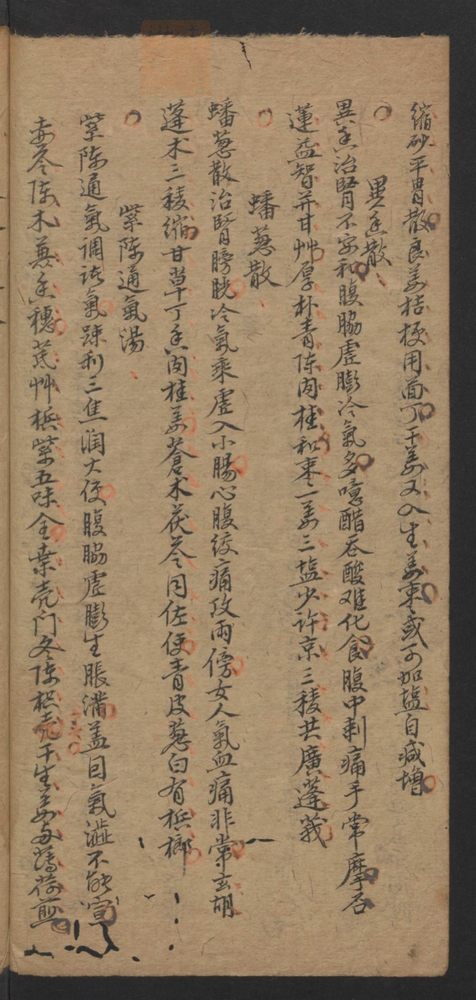 缩砂平胃散良姜桔梗用茴丁干姜又入生姜枣或可加塩自减增
異香散
異香治腎不安和腹脇虚膨冷氣多噫醋吞酸难化食腹中刺痛手常摩石
蓮益智并甘艸厚朴青陈肉桂和枣一姜三塩少许京三稜共廣蓬莪
蟠葱散
蟠葱散治腎膀胱冷氣乘虚入小腸心腹绞痛攻两傍女人氣血痛非常玄胡
蓬术三稜缩甘草丁香肉桂姜蒼术茯苓同佐使青皮葱白有槟榔
紫陈通氣湯
紫陈通氣调諸氣疎利三焦润大便腹脇虚膨生脹满盖因氣澁不能宣
赤苓陈木茴香穗芎艸槟紫五味全桑壳门冬陈枳壳干生姜与薄荷煎